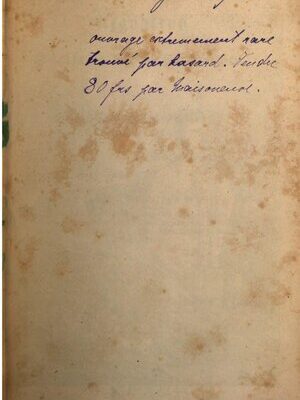 ouvrage extremement rare
trouvé par hasard. Vendu
80 frs par Maisonneuve.